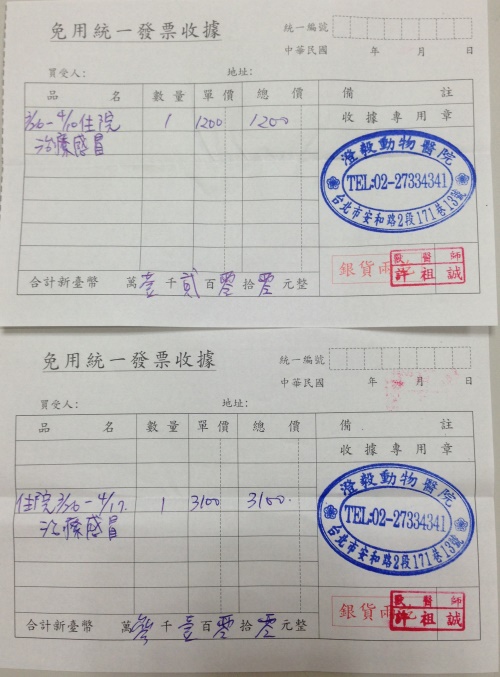 免用統一發票收據
統一編號
中華民國 年 月 日
買受人： 地址：
品 名 數量 單價 總價 備 註
3/26-4/10住院 1 1200 1200 收據專用章
治療感冒
澄毅動物醫院
TEL:02-27334341
台北市安和路2段171巷13號
銀貨兩訖
獸醫師
許祖誠
合計新臺幣 萬壹千貳百零拾零元整
免用統一發票收據
統一編號
中華民國 年 月 日
買受人： 地址：
品 名 數量 單價 總價 備 註
收據專用章
住院3/26-4/17. 1 3100 3100.
治療感冒
澄毅動物醫院
TEL:02-27334341
台北市安和路2段171巷13號
銀貨兩訖
獸醫師
許祖誠
合計新臺幣 萬 千壹百零拾零元整